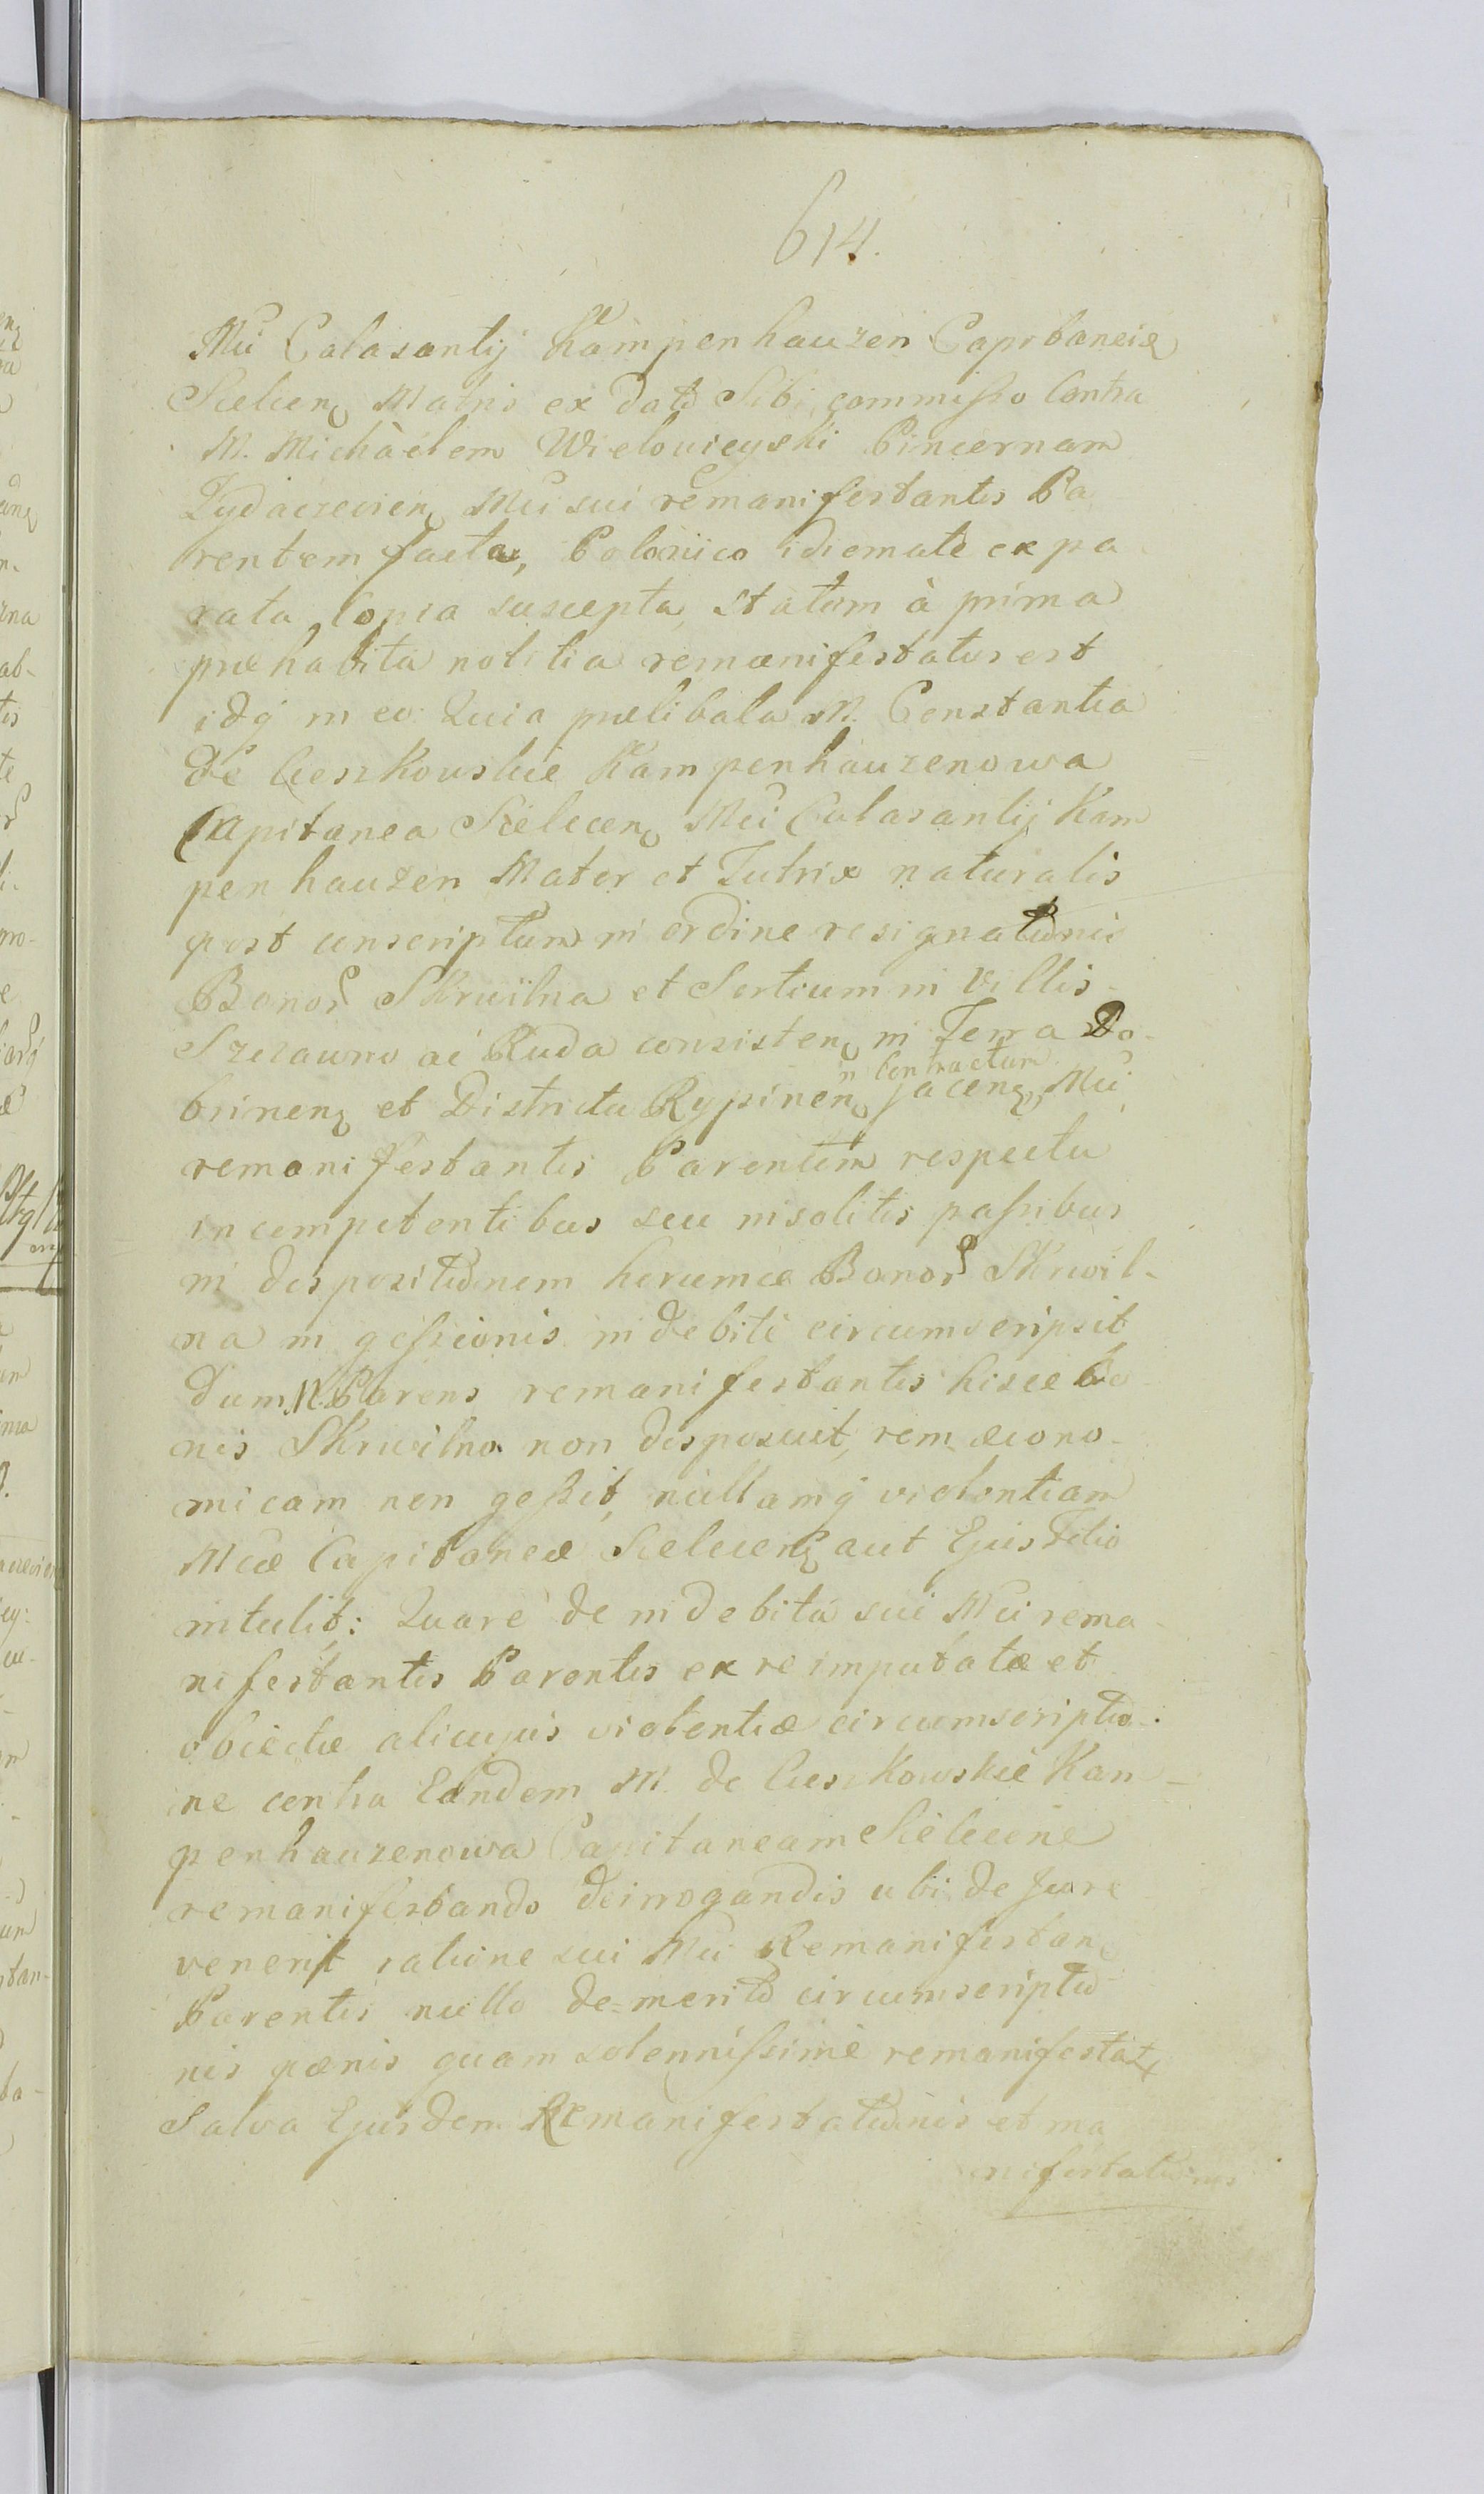 614.
Mci Calasantij Kampenhauzen Capitaneid
Sielecen. Matris ex dato Sibi commisso Contra
M. Michàélem Wielowieyski Pincernam
Zydaczevien. Mci sui remanifestantis Pa
rentem facta, Polonico idiomate expa
rata, copia suscepta, statim à prima
præhabita notitia remanifestatus est
idq in eo: Quia prælibata M. Constantia
de Cieszkowskie Kampenhauzenowa
Capitanea Sielecen. Mci Calasantij Kam
penhauzen Mater et Tutrix naturalis
post conscriptum in ordine resignationis
Bonor Skrwilna et Sortium in Villis
Szczawno ac Ruda consisten. in Terra Do-
n Contractum
brinen. et Districtu Rypinen. jacen. Mci
remanifestantis Parentem respectu
incompetentibus seu insolitis passibus
in dispositionem horumce Bonor Skrwil-
na in gessionis indebite circumscripsit
dum M. Parens remanifestantis hisce Bo
nis Skrwilno non disposuit, rem æcono-
micam non gessit, nullamq violentiam
Mcæ Capitaneæ Sielecen. aut Ejus Filio
intulit: Quare de indebita sui Mci rema-
nifestantis Parentis ex re imputatæ et
obiectæ alicujus violentiæ circumscriptio-
ne contra Eandem M. de Cieszkowskie Kam-
penhauzenowa Capitaneam Sielecene
remanifestando de irrogandis ubi de Jure
venerit ratione sui Mci Remanifestan.
Parentis nullo de=merito circumscriptio
nis pænis quam solennissime remanifestat
Salva Ejusdem Remanifestationis et ma
nifestationis